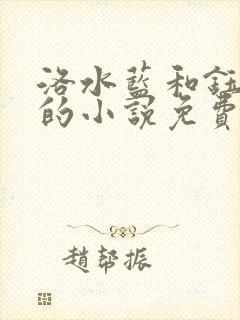 洛水藍和鈺
的小說免費
趙幫振